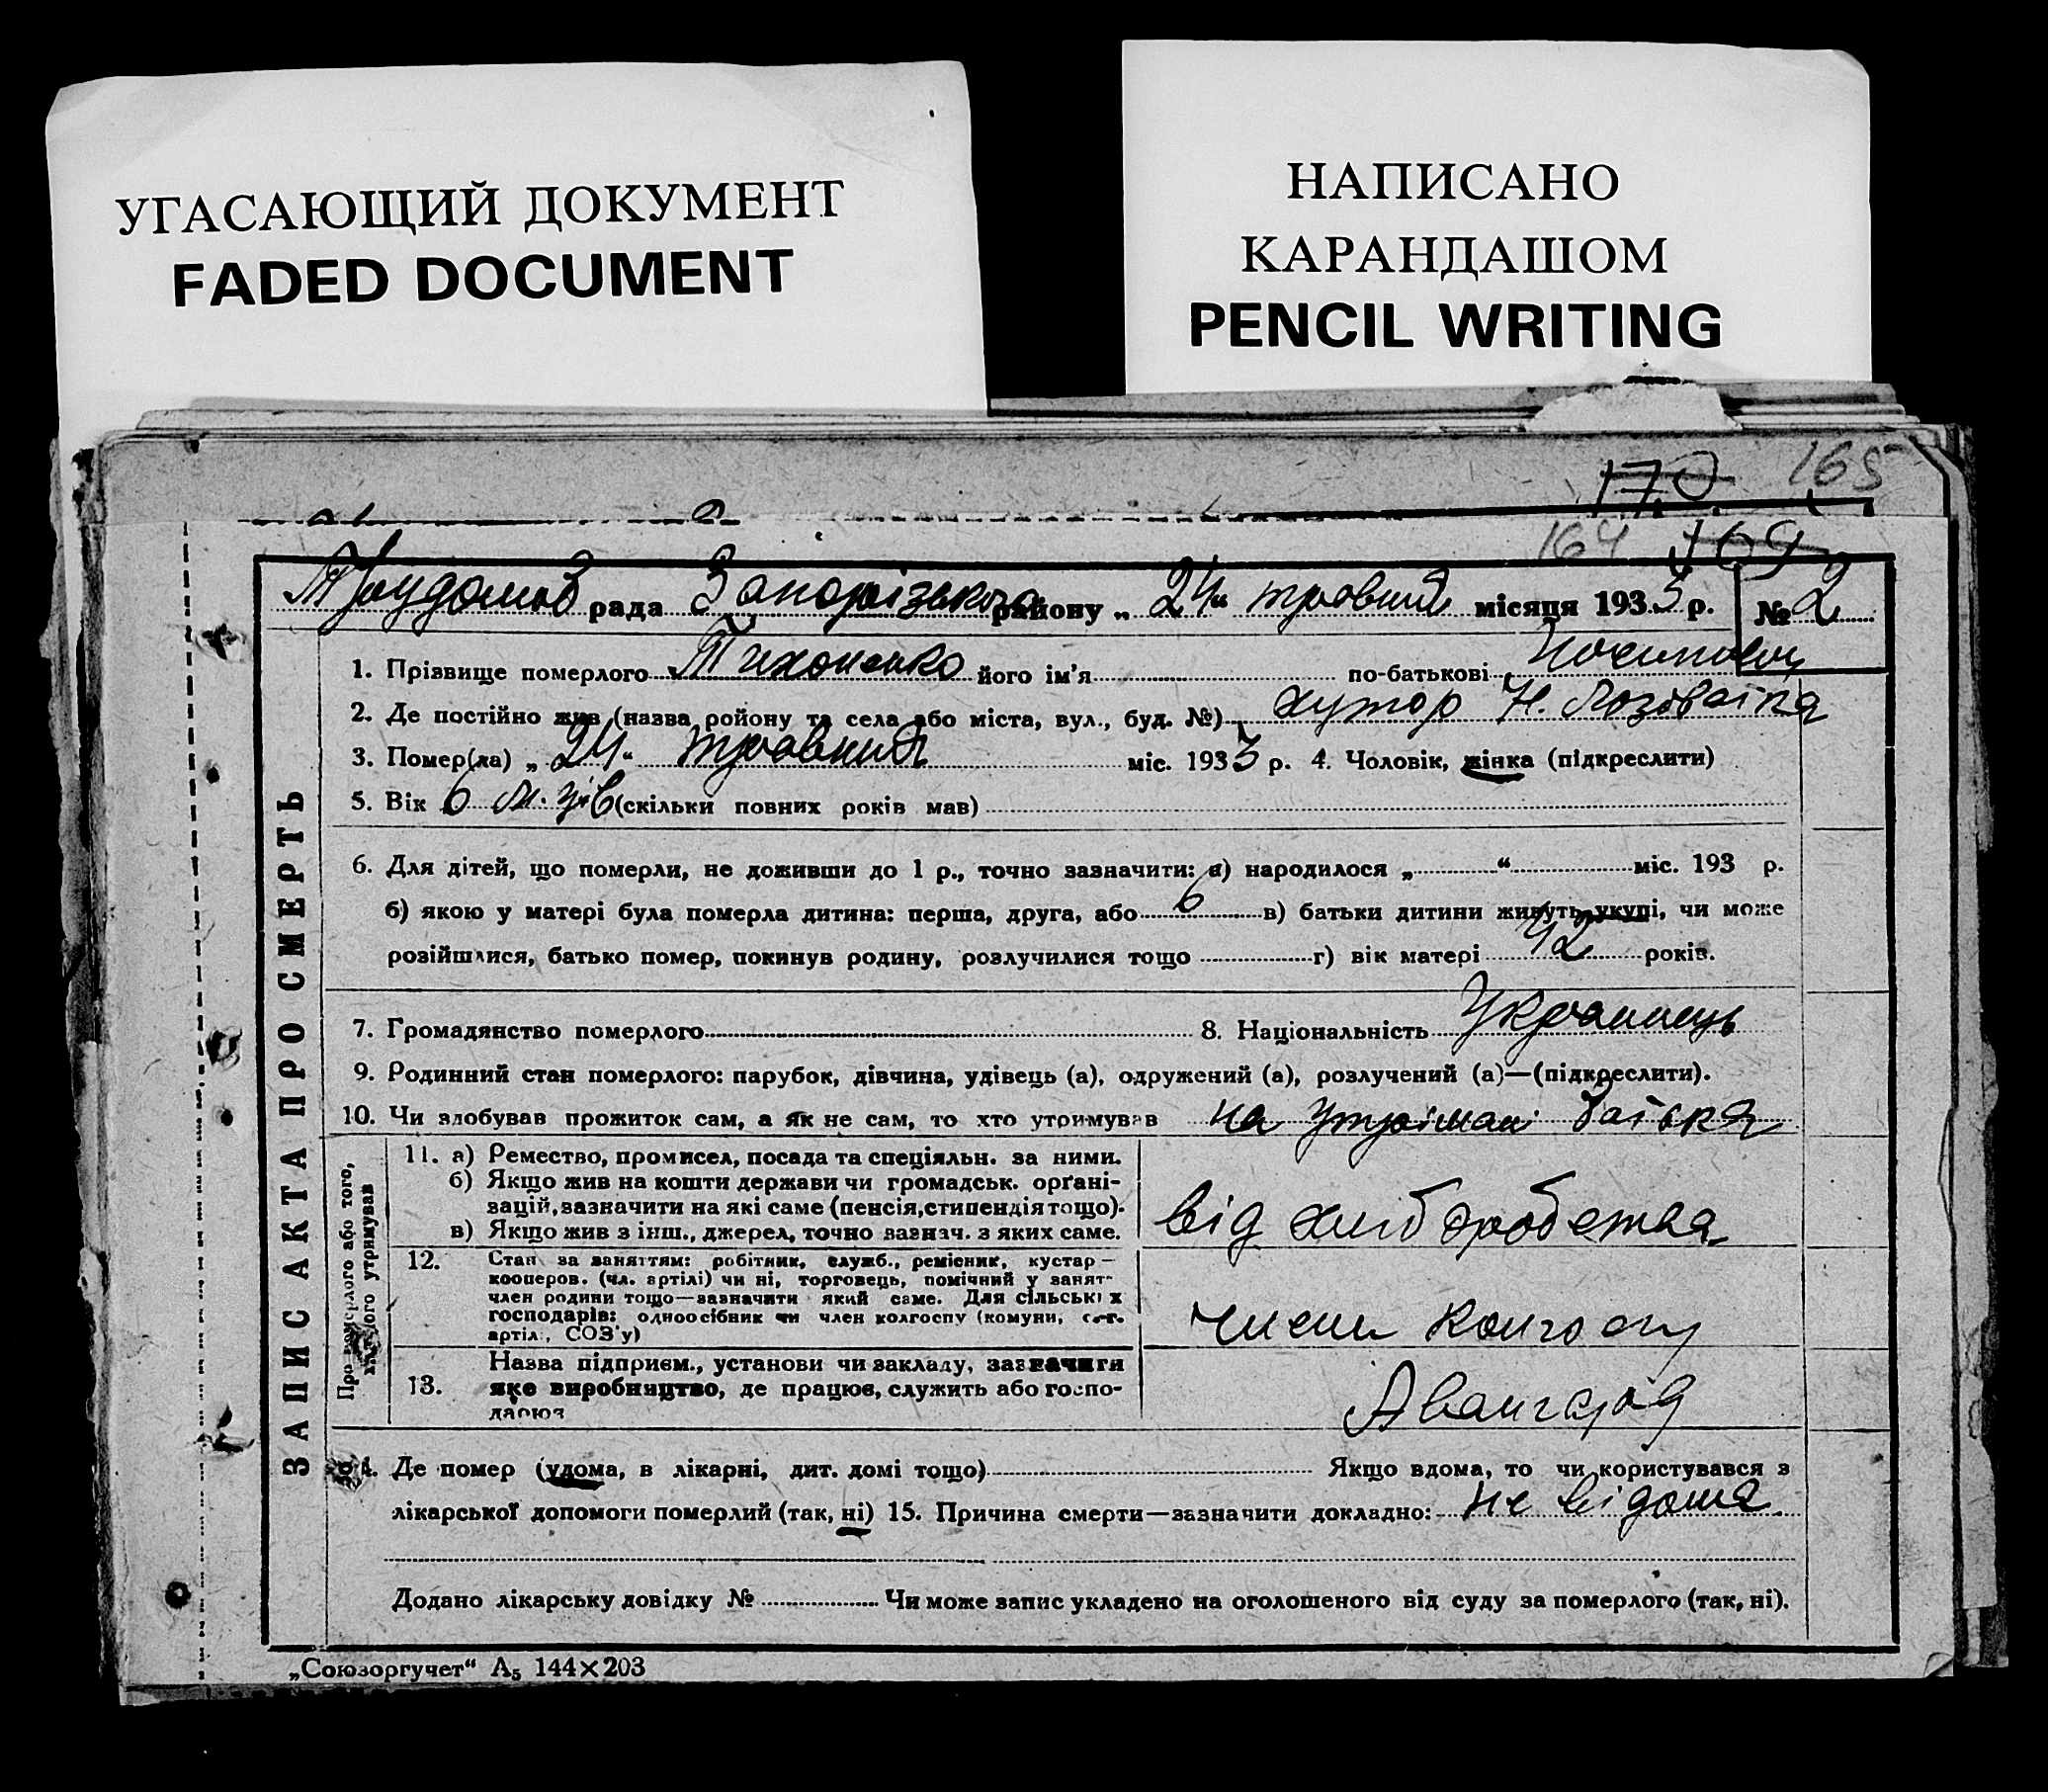 УГАСАЮЩИЙ ДОКУМЕНТ
FADED DOCUMENT
НАПИСАНО
КАРАНДАШОМ
PENCIL WRITING
170 165
164 169
рада Запорізького району „ 24 “ травня місяця 1933 р. № 2
ЗАПИС АКТА ПРО СМЕРТЬ
1. Прізвище померлого Тихоненко його ім'я по-батькові
2. Де постійно жив (назва ройону та села або міста, вул., буд. №) хутор Н. Лозоватка
3. Помер(ла) „ 24 “ травня міс. 1933 р. 4. Чоловік, жінка (підкреслити)
5. Вік 6 м-ців (скільки повних років мав)
6. Для дітей, що померли, не доживши до 1 р., точно зазначити: а) народилося „ “ міс. 193 р.
б) якою у матері була померла дитина: перша, друга, або 6 в) батьки дитини живуть укупі, чи може
розійшлися, батько помер, покинув родину, розлучилися тощо г) вік матері 42 років.
7. Громадянство померлого 8. Національність Українець
9. Родинний стан померлого: парубок, дівчина, удівець (а), одружений (а), розлучений (а)—(підкреслити).
10. Чи здобував прожиток сам, а як не сам, то хто утримував на утріман батька
Про померлого або того, хто його утримував
11. а) Ремество, промисел, посада та спеціяльн. за ними.
б) Якщо жив на кошти держави чи громадськ. орґані-
зацій, зазначити на які саме (пенсія, стипендія тощо).
в) Якщо жив з інш., джерел, точно зазнач. з яких саме.
від хліборобства
12. Стан за заняттям: робітник, служб., ремісник, кустар—
кооперов. (чл. артілі) чи ні, торговець, помічний у занят-
член родини тощо—зазначити який саме. Для сільських
господарів: одноосібник чи член колгоспу (комуни, с.-г.
артіл., СОЗ'у)
член колгоспу
13. Назва підприєм., установи чи закладу, зазначити
яке виробництво, де працює, служить або госпо-
дарює
Авангард
14. Де помер (удома, в лікарні, дит. домі тощо) Якщо вдома, то чи користувався з
лікарської допомоги померлий (так, ні) 15. Причина смерти—зазначити докладно: не відома
Додано лікарську довідку № Чи може запис укладено на оголошеного від суду за померлого (так, ні).
„Союзоргучет“ А₅ 144×203